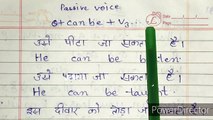 Passive voice
O + can be + V3...
उसे पीटा जा सकता है।
He can be beaten.
उसे पढ़ाया जा सकता है।
He can be taught.
इस दीवार को तोड़ा जा
PowerDirector